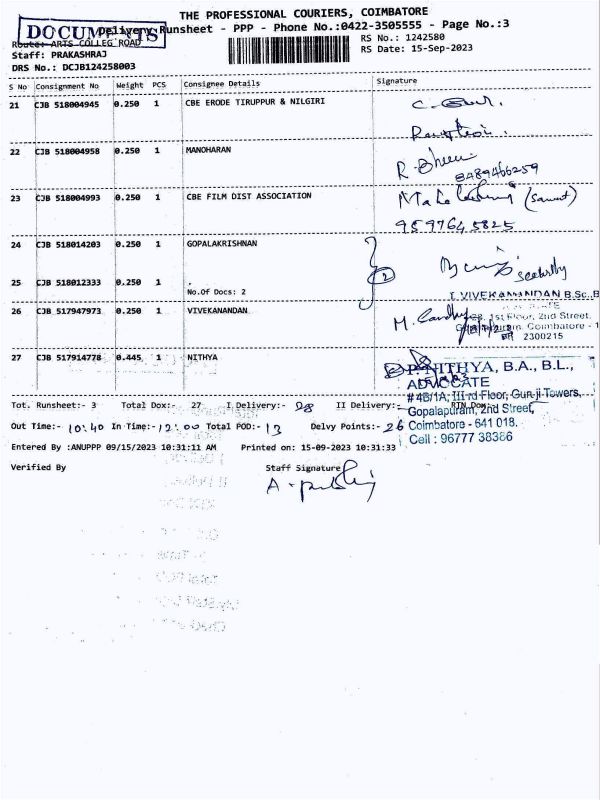 THE PROFESSIONAL COURIERS, COIMBATORE
DOCUMENTS
Delivery Runsheet - PPP - Phone No.:0422-3505555 - Page No.:3
Route: ARTS COLLEG ROAD
RS No.: 1242580
Staff: PRAKASHRAJ
RS Date: 15-Sep-2023
DRS No.: DCJB124258003
S No Consignment No Weight PCS Consignee Details Signature
21 CJB 518004945 0.250 1 CBE ERODE TIRUPPUR & NILGIRI
22 CJB 518004958 0.250 1 MANOHARAN
8489466259
23 CJB 518004993 0.250 1 CBE FILM DIST ASSOCIATION
9597645825
24 CJB 518014203 0.250 1 GOPALAKRISHNAN
2
25 CJB 518012333 0.250 1 .
No.Of Docs: 2
T. VIVEKANANDAN B.Sc.,B
26 CJB 517947973 0.250 1 VIVEKANANDAN
1st Floor, 2nd Street,
Coimbatore - 1
2300215
27 CJB 517914778 0.445 1 NITHYA
P. NITHYA, B.A., B.L.,
ADVOCATE
# 4B/1A, III rd Floor, Guruji Towers,
Gopalapuram, 2nd Street,
Coimbatore - 641 018.
Cell : 96777 38386
Tot. Runsheet:- 3 Total Dox:- 27 I Delivery:- 28 II Delivery:- RTN Dox:-
Out Time:- 10:40 In Time:- 12:00 Total POD:- 13 Delvy Points:- 26
Entered By :ANUPPP 09/15/2023 10:31:11 AM Printed on: 15-09-2023 10:31:33
Verified By Staff Signature